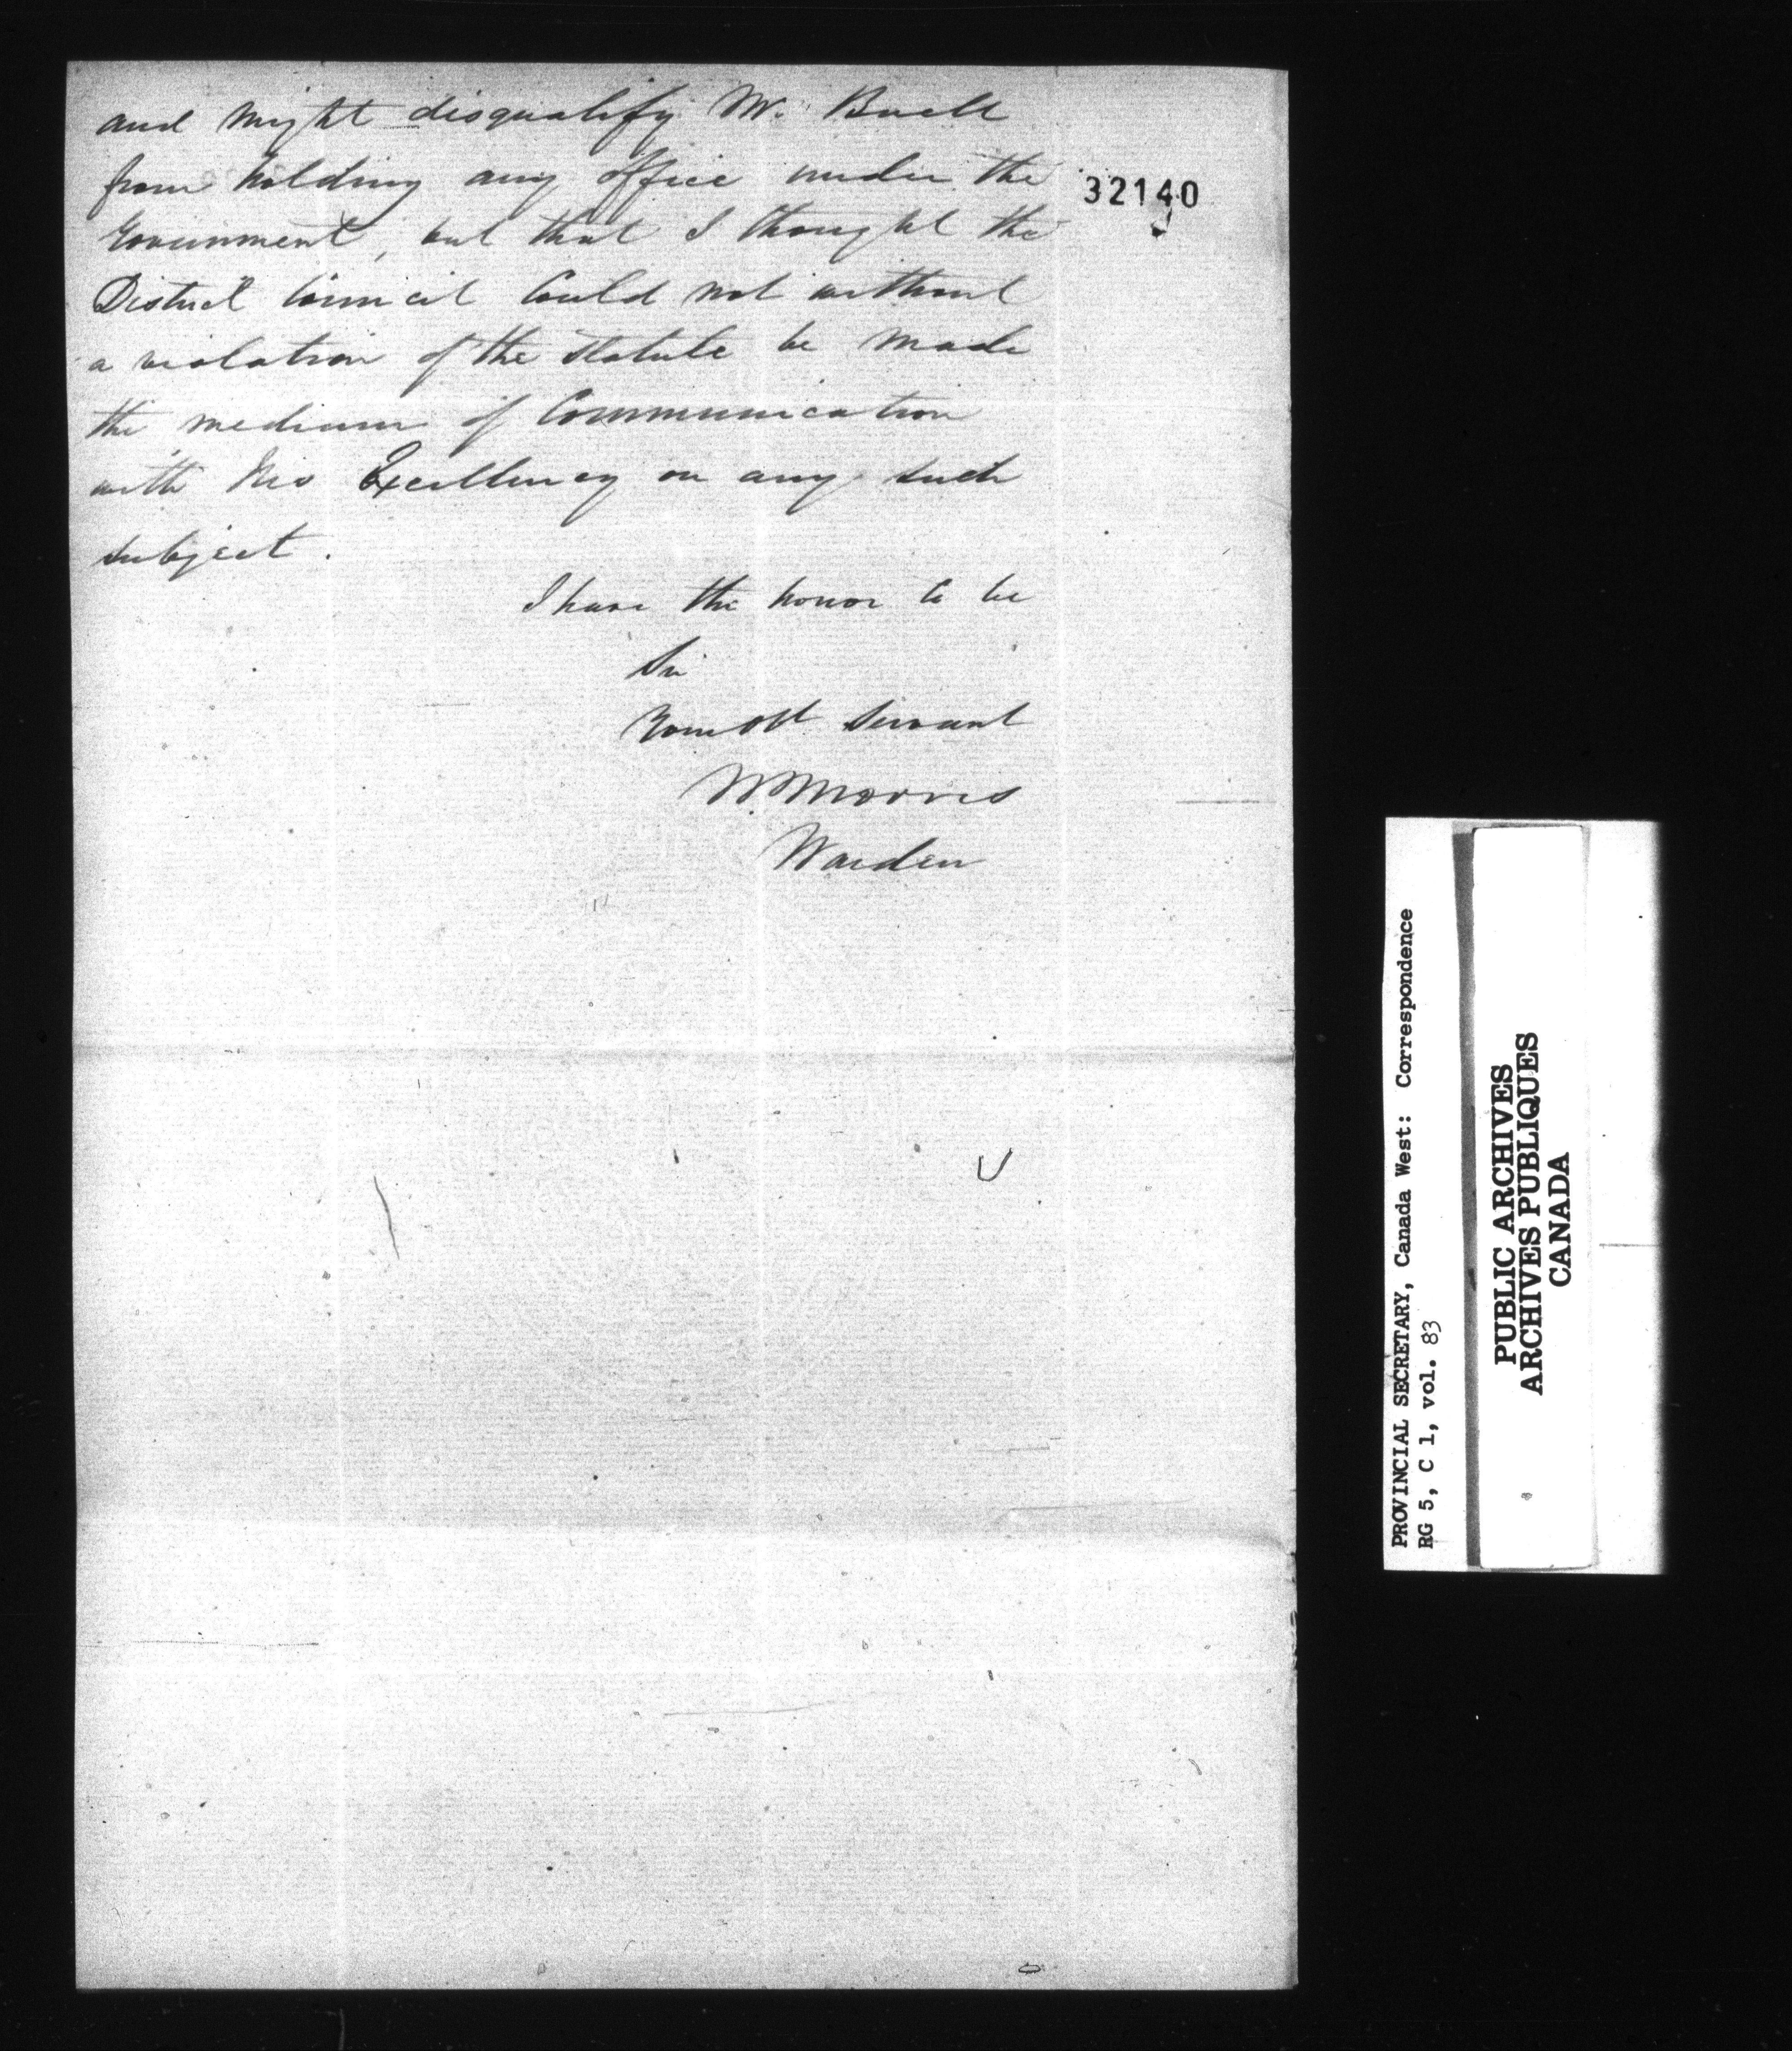 and might disqualify Mr. Buell
from holding any office under the
Government, but that I thought the
District Council Could not without
a violation of the Statute be made
the medium of Communication
with His Excellency on any such
subject.
I have the honor to be
Sir
Your Obt Servant
W Morris
Warden
32140
PROVINCIAL SECRETARY, Canada West: Correspondence
RG 5, C 1, vol. 83
PUBLIC ARCHIVES
ARCHIVES PUBLIQUES
CANADA